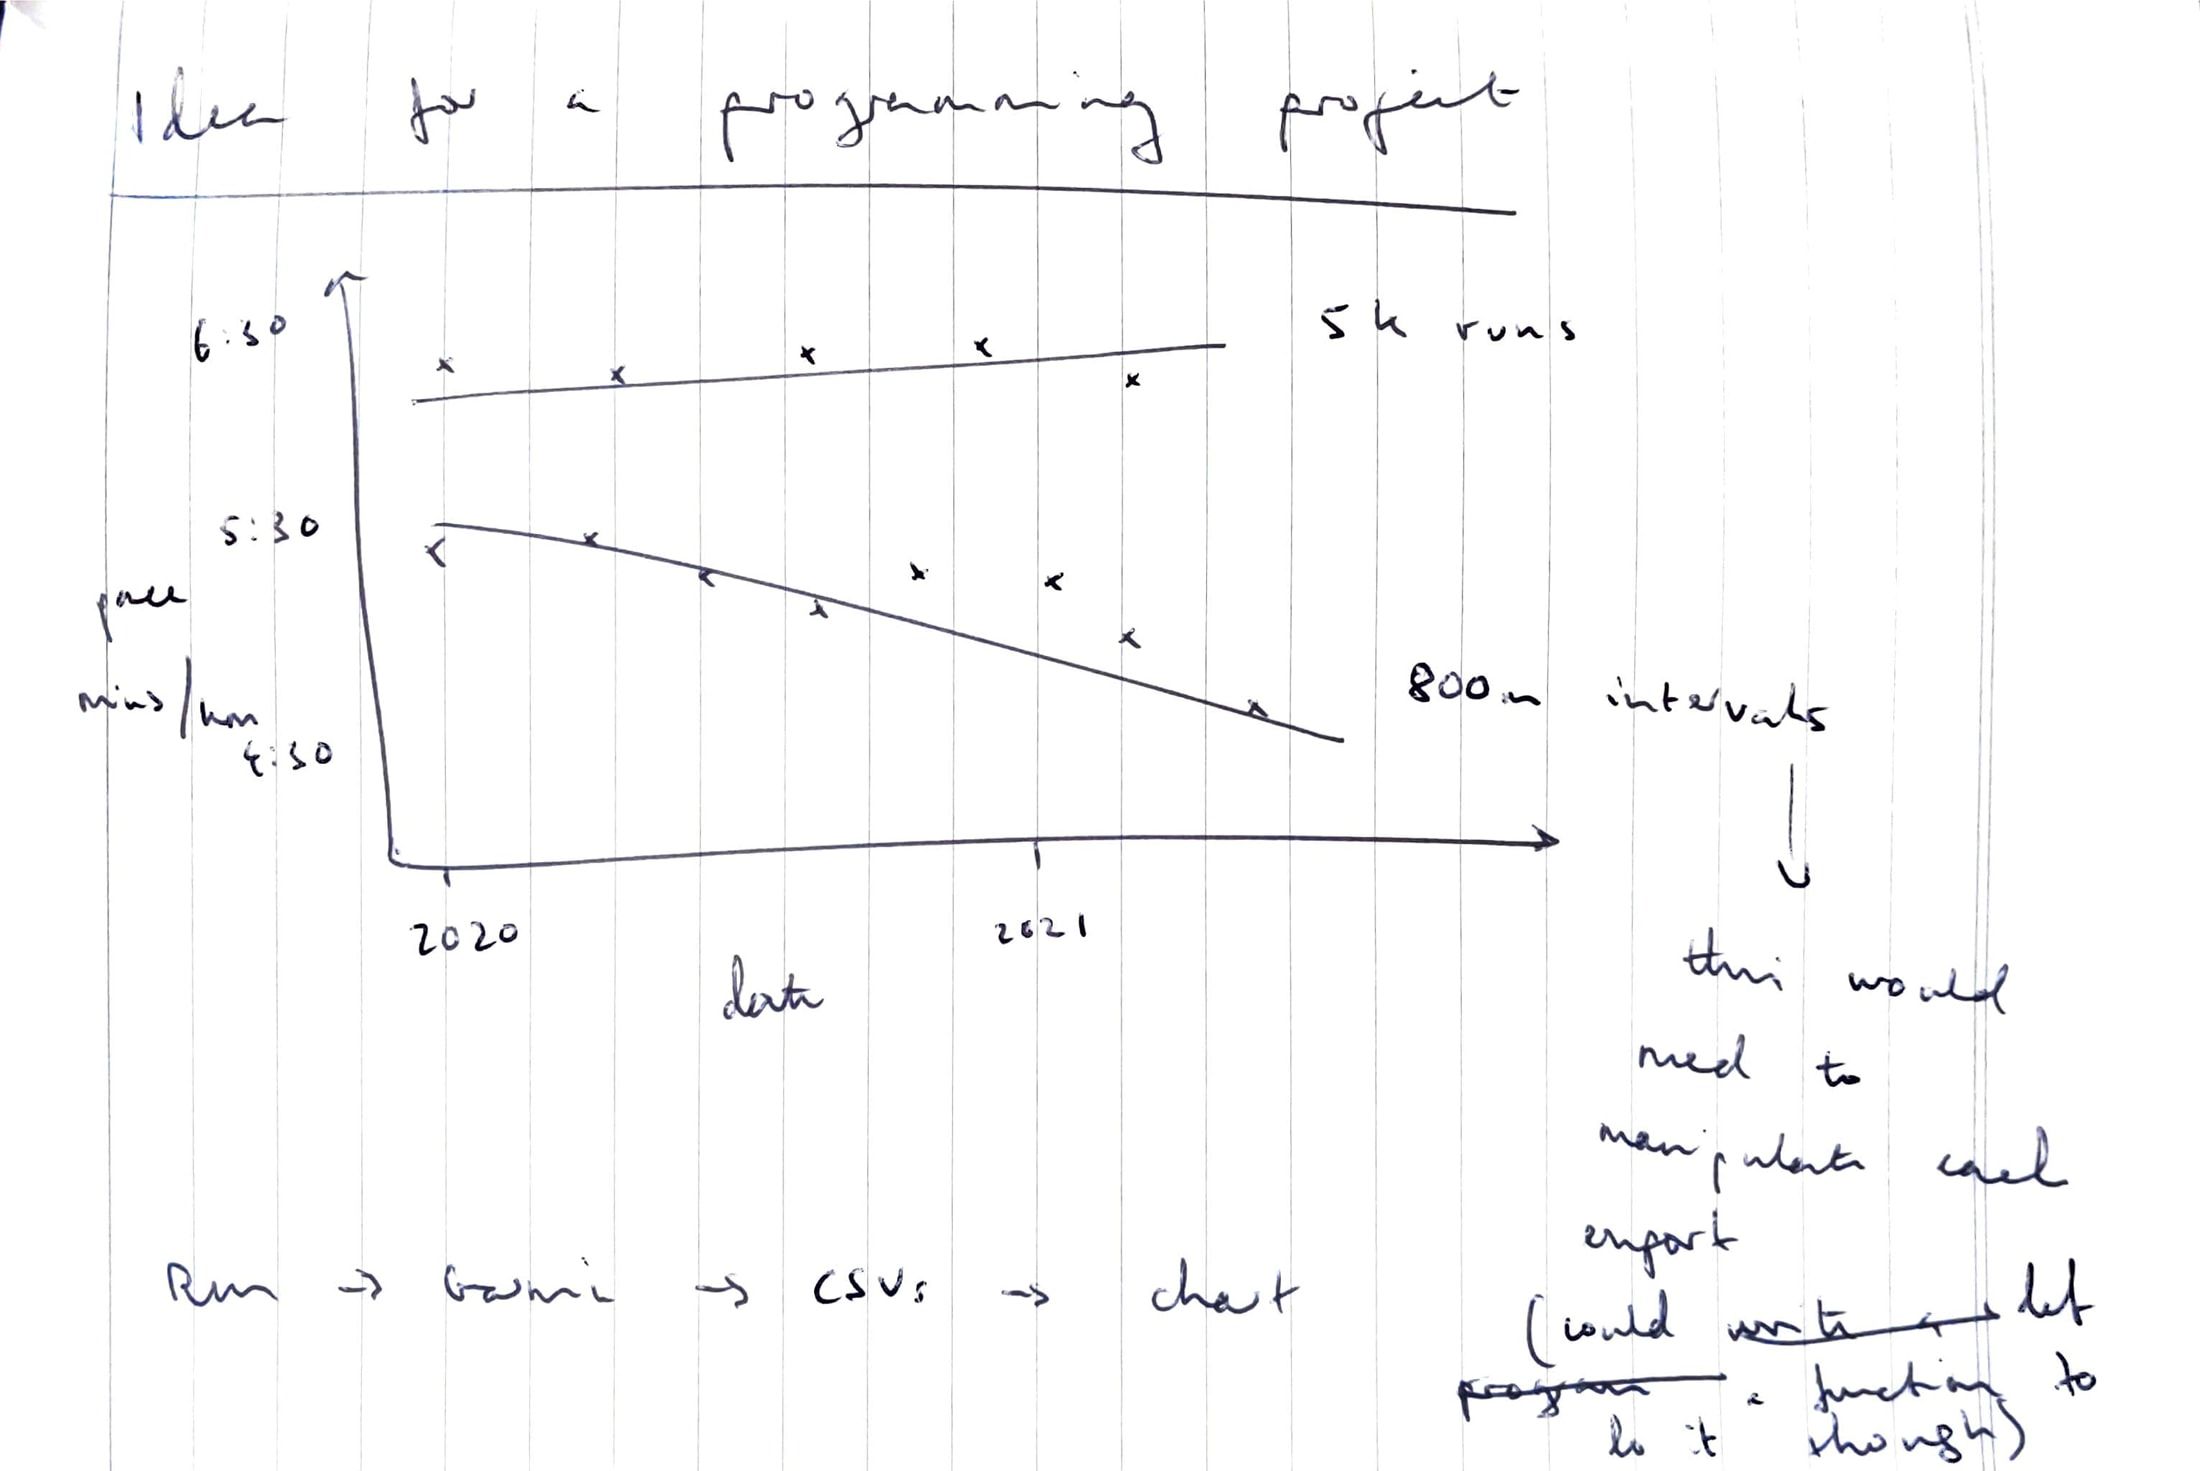 Idea for a programming project
6:30
5k runs
5:30
pace
mins/km
4:30
800m intervals
2020
2021
date
this would
need to
manipulate each
export
(could write a def
program a function to
do it though)
Run → Garmin → CSVs → chart